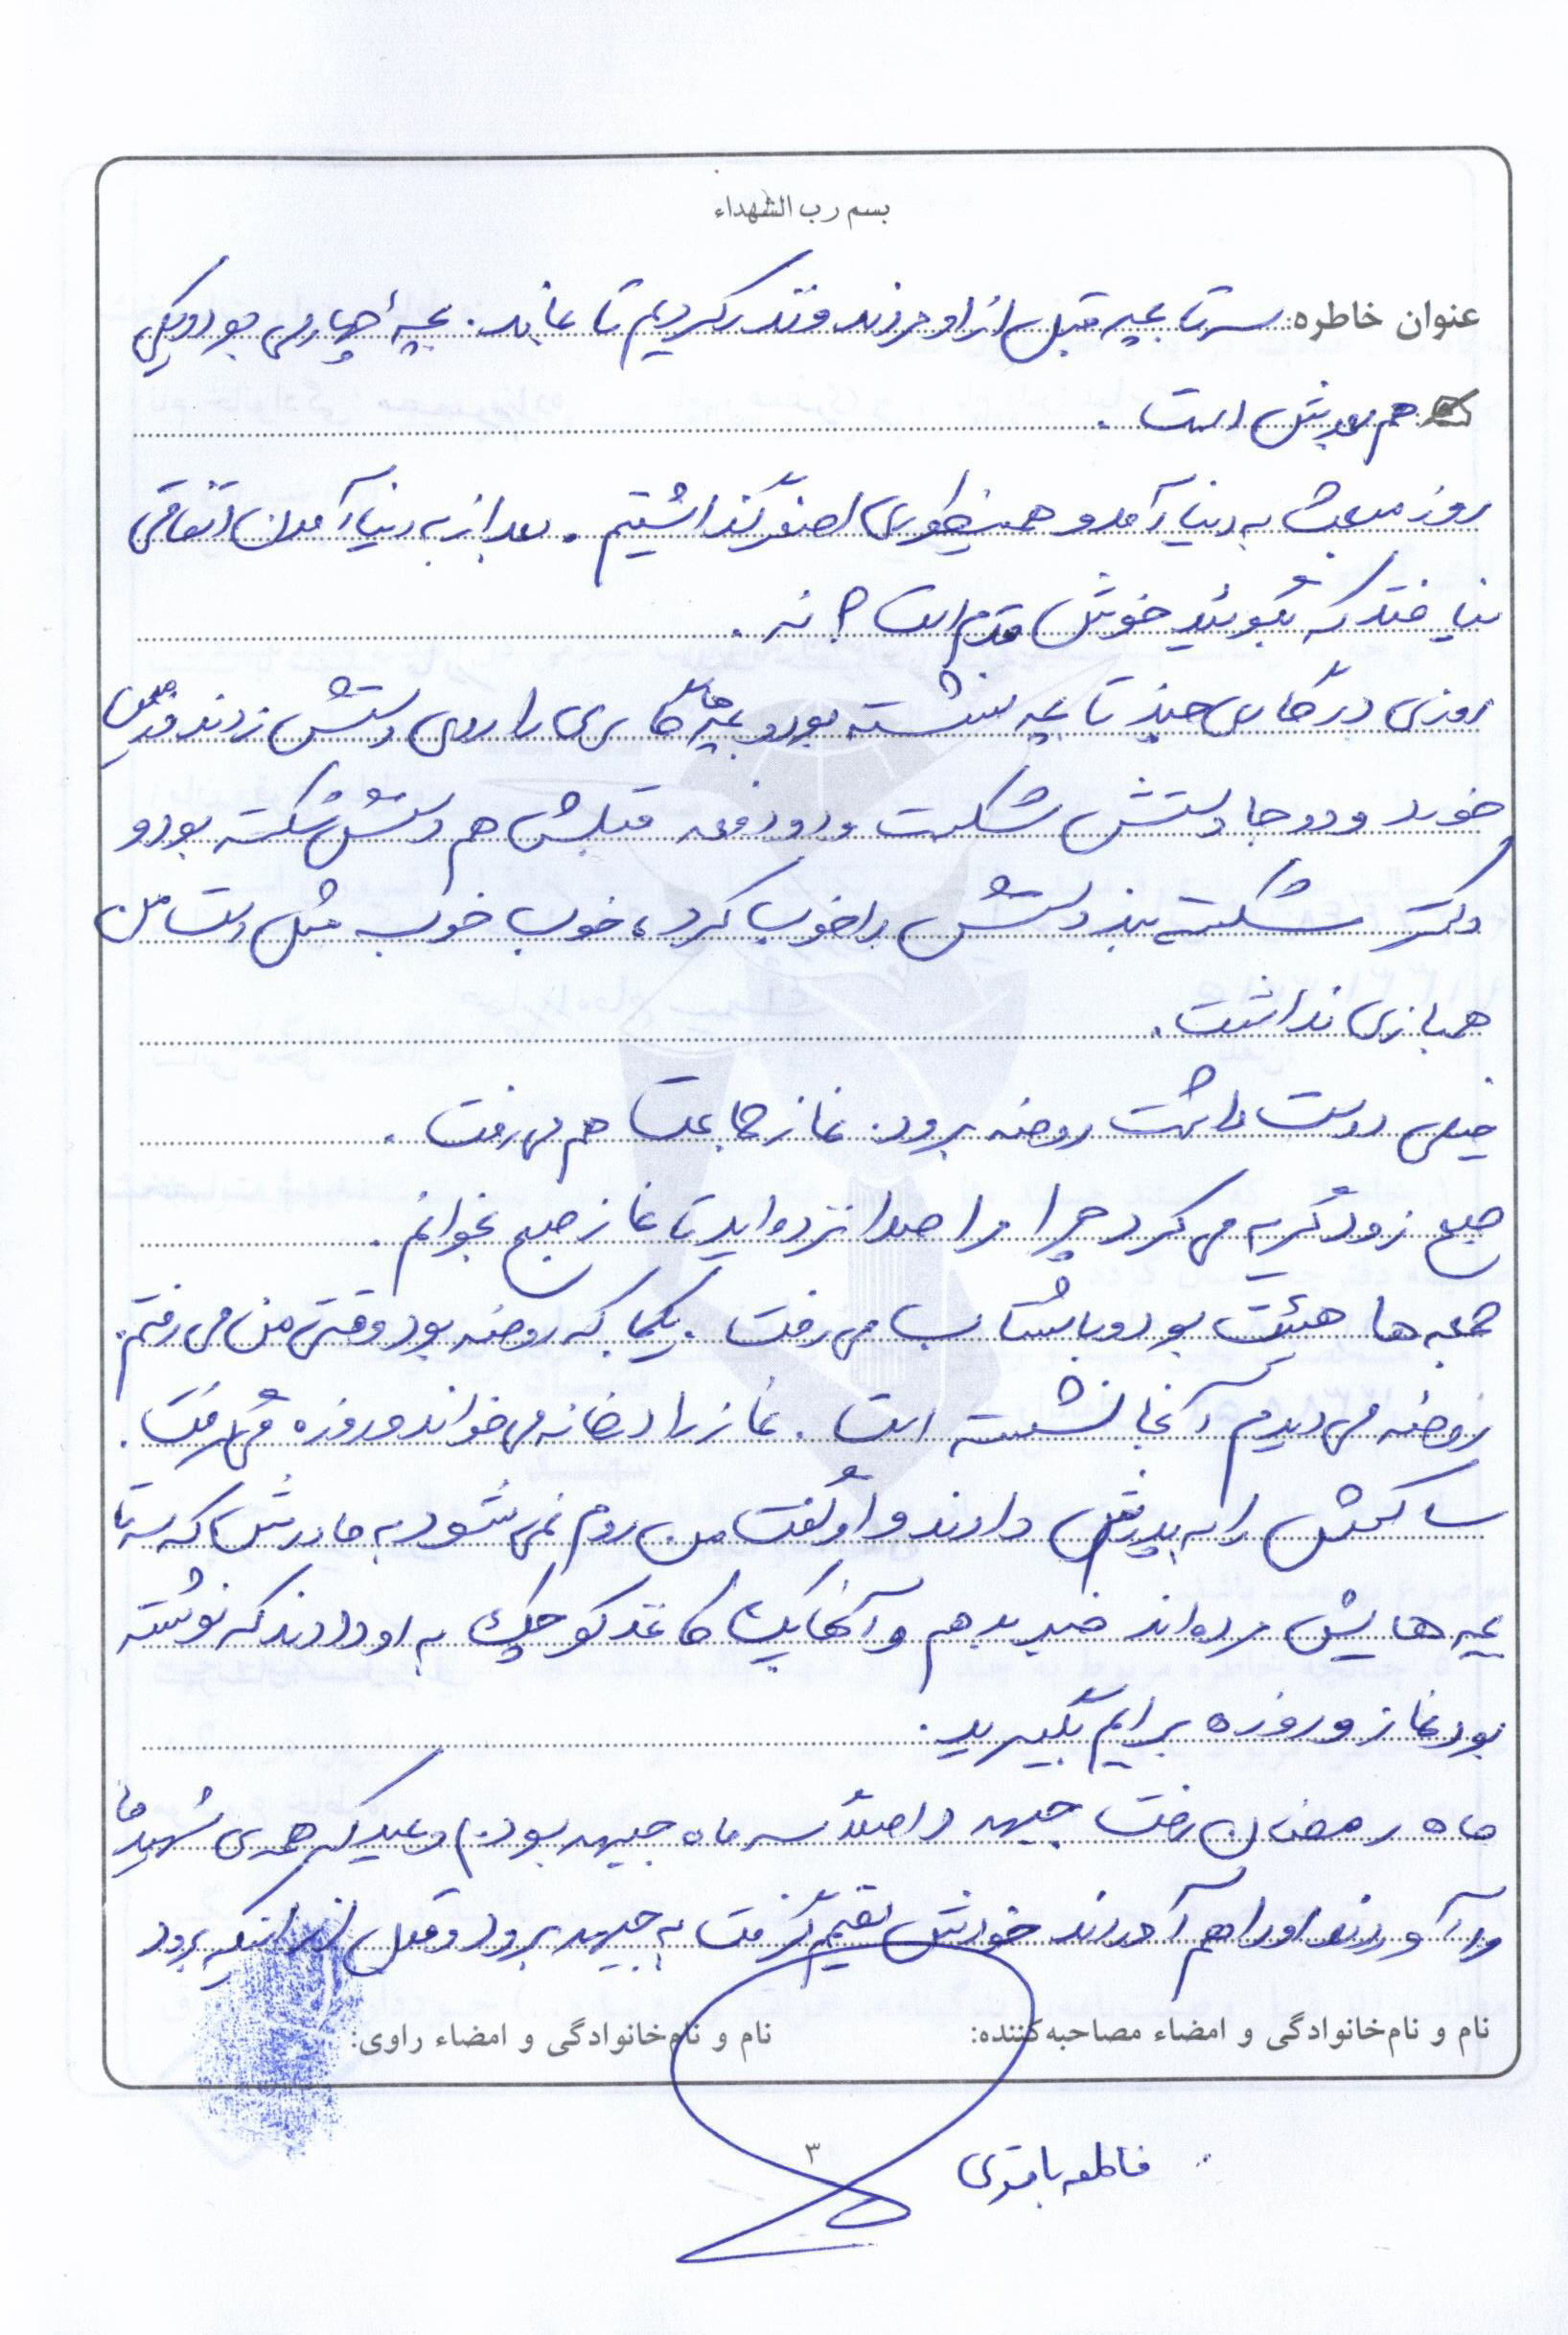 بسم رب الشهداء
عنوان خاطره: سه تا بچه قبل از او مردند و نذر کردیم تا بماند. بچهٔ چهارمی بود و یکی
هم بعدش است.
روز مبعث به دنیا آمد و همینطوری اصغر گذاشتیم. بعد از به دنیا آمدن اتفاقی
نیافتد که بگوئید خوش قدم است؟ نه.
روزی در گاری چند تا بچه نشسته بود و بچه‌ها گاری را روی دستش زدند و زمین
خورد و دو جا دستش شکست و دو دفعه قبلش هم دستش شکسته بود و
دکتر شکسته بند دستش را خوب کرد، خوب خوب مثل دست من
همبازی نداشت.
خیلی دوست داشت روضه برود. نماز جماعت هم می رفت.
صبح زود گریه می کرد چرا مرا صدا نزده اید تا نماز صبح بخوانم.
جمعه ها هیئت بود و با شتاب می رفت. یکجا که روضه بود وقتی من می رفتم.
روضه می دیدم آنجا نشسته است. نماز را در خانه می خواند و روزه می گرفت.
ساکش را به پدرش دادند و او گفت من روم نمی شود به مادرش که سه تا
بچه هایش مرده اند خبر بدهم و آنجا یک کاغذ کوچک به او دادند که نوشته
بود نماز و روزه برایم بگیرید.
ماه رمضان رفت جبهه و اصلاً سه ماه جبهه بود. و عید که همه ی شهیدها
را آوردند او را هم آوردند خودش تصمیم گرفت به جبهه برود و قبل از اینکه برود
نام و نام‌خانوادگی و امضاء مصاحبه‌کننده: نام و نام‌خانوادگی و امضاء راوی:
فاطمه باقری
۳